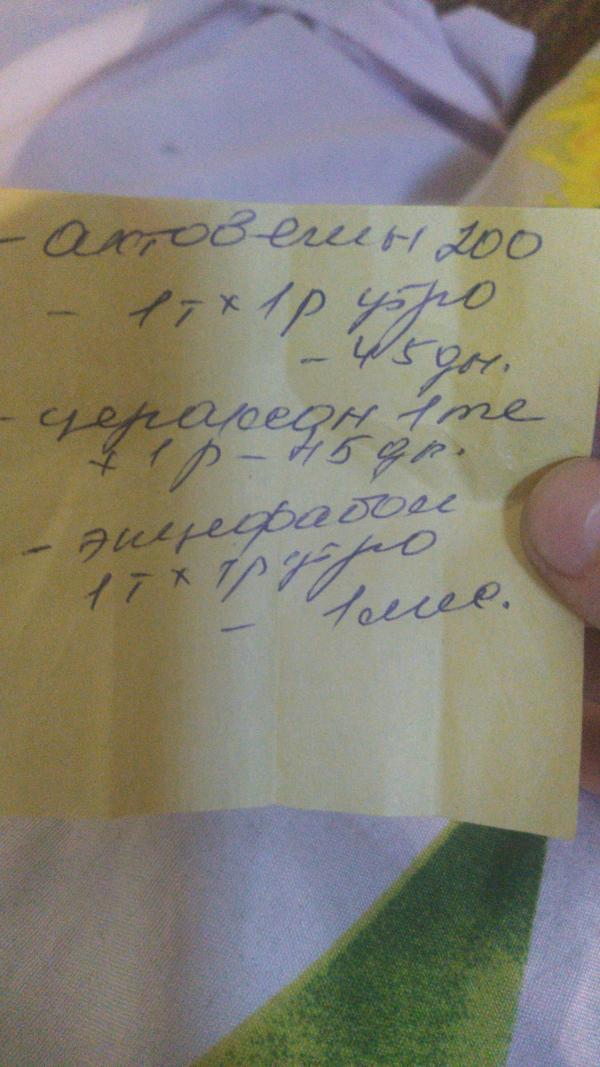 - актовегин 200
- 1т × 1р утро
- 45 дн.
- цераксон 1 те
× 1 р - 45 дн.
- энцефабол
1т × 1р утро
- 1 мес.